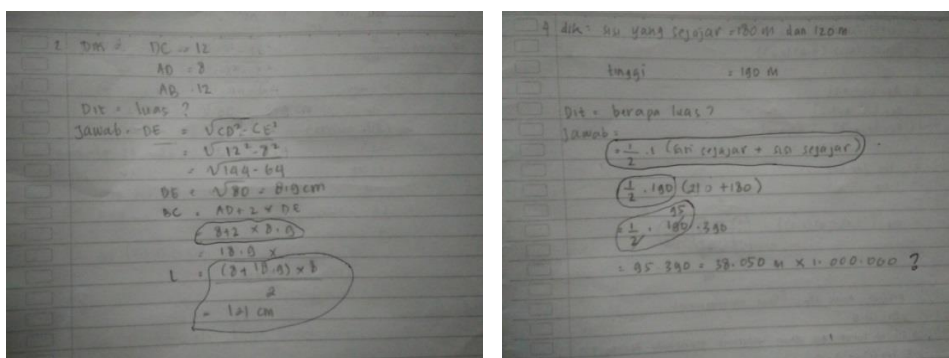 2 Dik = DC = 12
AD = 8
AB = 12
Dit = luas ?
Jawab = DE = √CD² - CE²
= √12² - 8²
= √144 - 64
DE = √80 = 8.9 cm
BC = AD + 2 x DE
= 8+2 x 8.9
= 18.9 x
L = (8 + 18.9) x 8
2
= 121 cm
4 dik = sisi yang sejajar = 180 m dan 120 m
tinggi = 190 m
Dit = berapa luas ?
Jawab =
= 1/2 . t (sisi sejajar + sisi sejajar)
1/2 . 190 (210 + 180)
95
= 1/2 . 190 . 390
= 95 390 = 38.050 m x 1.000.000 ?